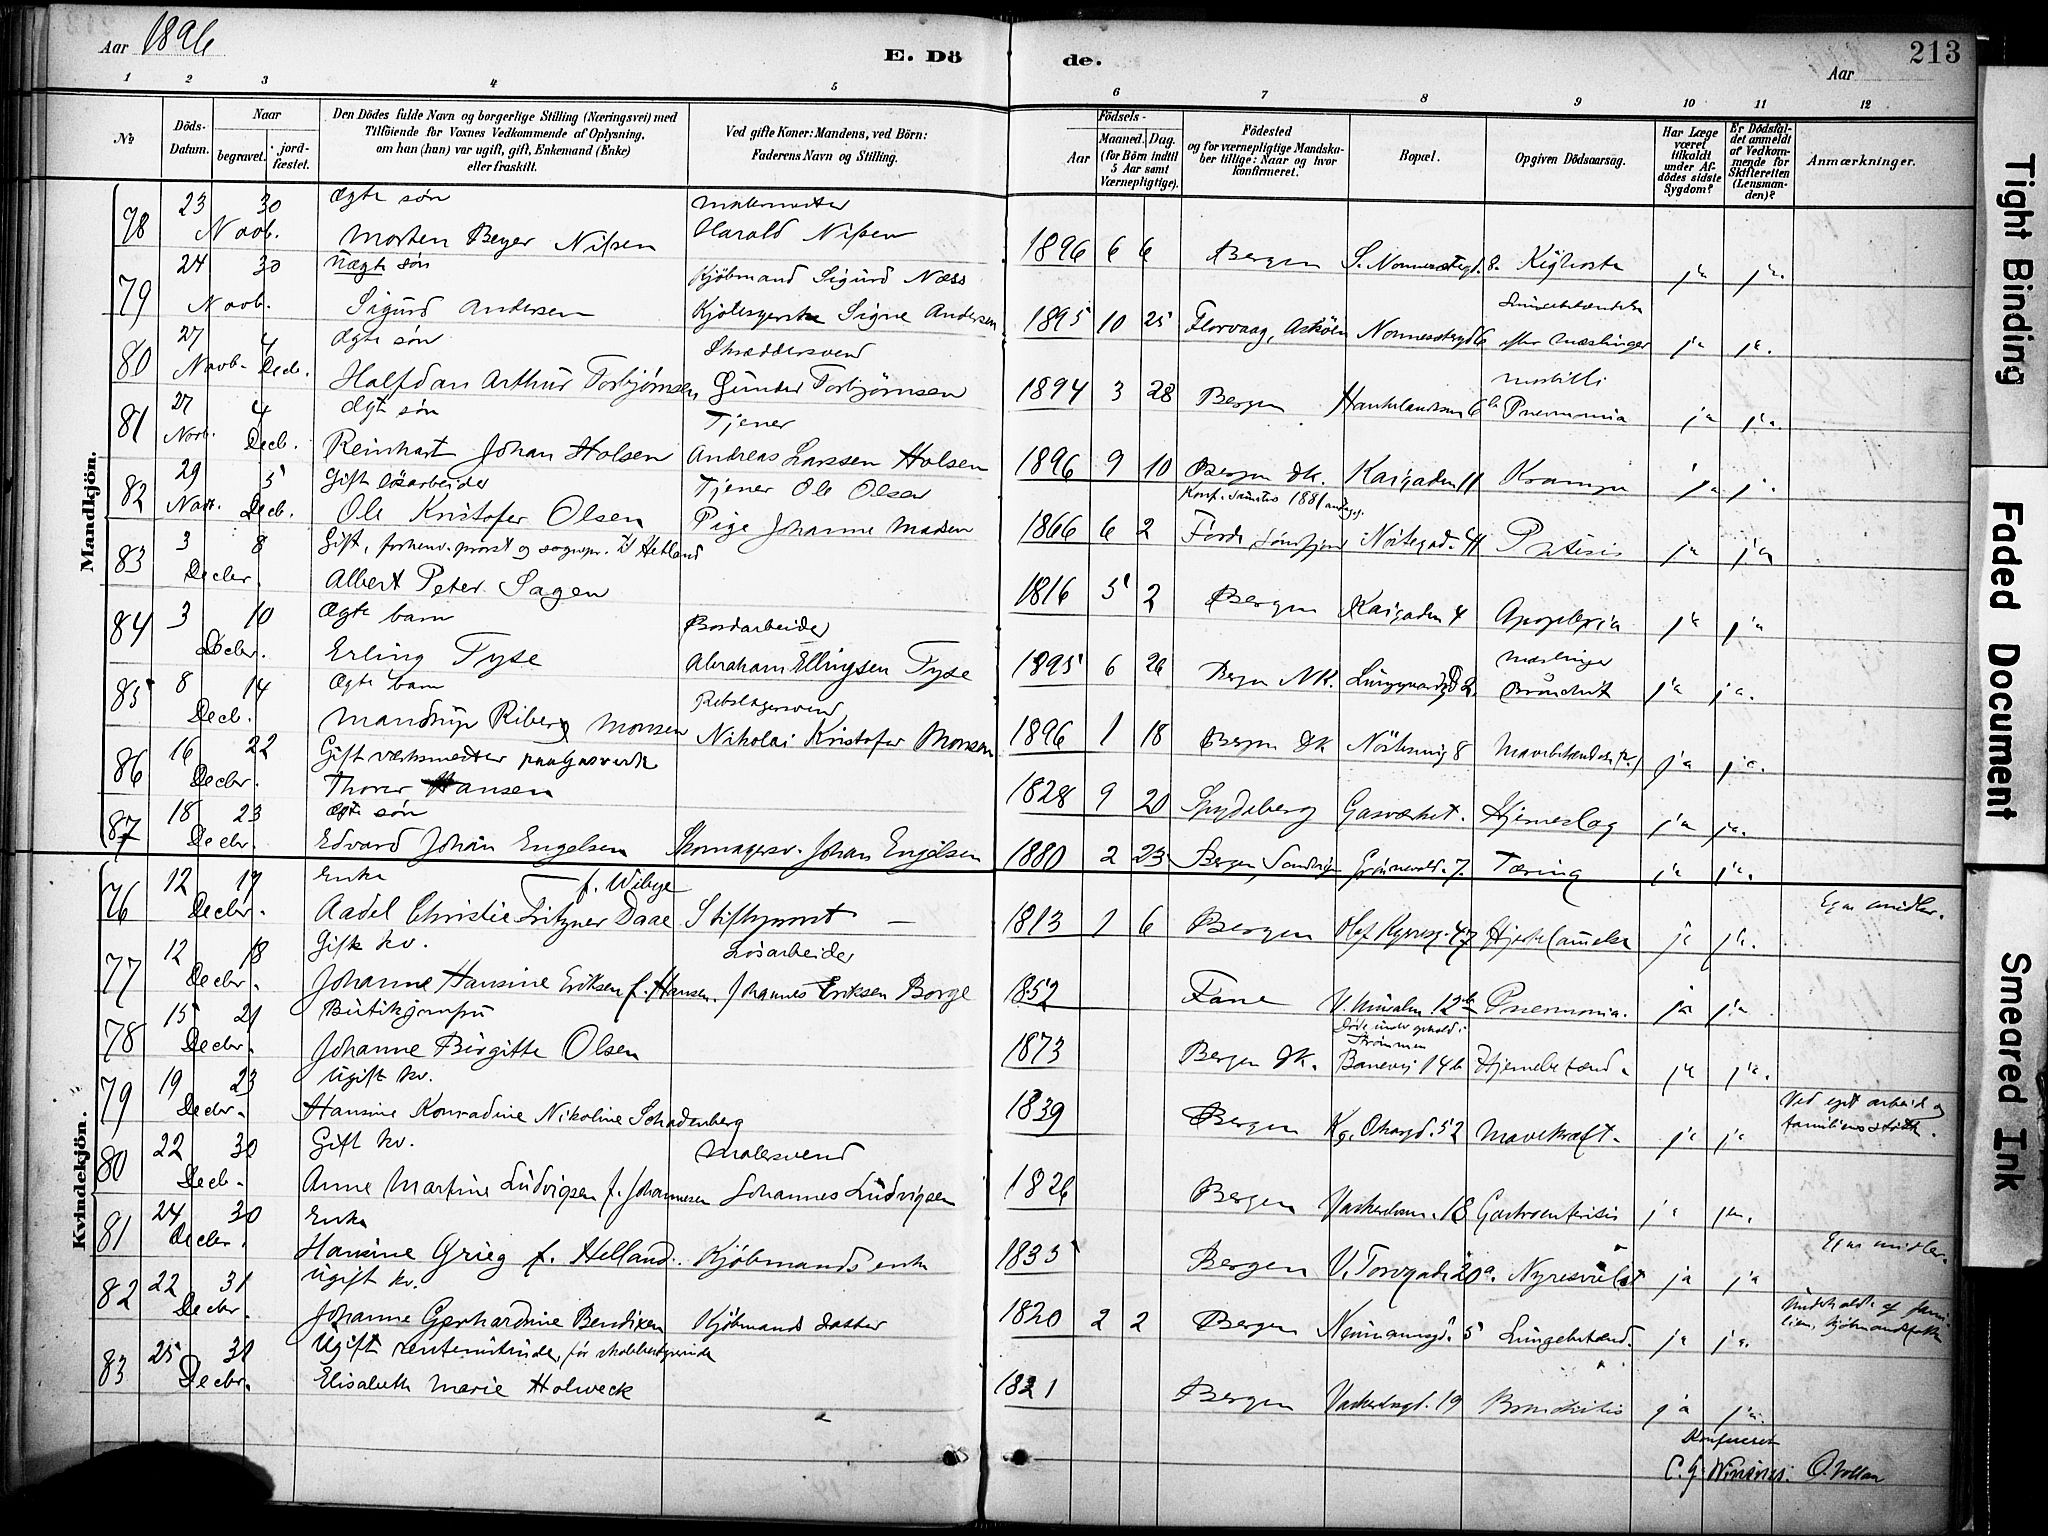 Aar 1896
E. Dö
de.
Aar
213
1 2 3 4 5 6 7 8 9 10 11 12
№
Döds-Datum.
Naar
begravet.
jord-fæstet.
Den Dödes fulde Navn og borgerlige Stilling (Næringsvei) med
Tilföiende for Voxnes Vedkommende af Oplysning,
om han (hun) var ugift, gift, Enkemand (Enke)
eller fraskilt.
Ved gifte Koner: Mandens, ved Börn:
Faderens Navn og Stilling.
Födsels-
Aar
Maaned. Dag.
(for Börn indtil
5 Aar samt
Værnepligtige).
Födested
og for værnepligtige Mandska-
ber tillige: Naar og hvor
konfirmeret.
Bopæl.
Opgiven Dödsaarsag.
Har Læge
været
tilkaldt
under Af-
dödes sidste
Sygdom?
Er Dödsfal-
det anmeldt
af Vedkom-
mende for
Skifteretten
(Lensman-
den)?
Anmærkninger.
Mandkjön.
78 23 30 Novb. Ægte søn Morten Beyer Nissen Malermester Harald Nissen 1896 6 6 Bergen S. 8. Kighoste ja ja.
79 24 30 Novb. Uægte søn Sigurd Andersen Kjøbmand Sigurd Næss Signe Andersen 1895 10 25 Florvaag, Askøen 6 efter Mæslinger ja ja.
80 27 Novb. 4 Decb. Ægte søn Halfdan Arthur Torbjørnsen, Skræddersvend Gunder Torbjørnsen 1894 3 28 Bergen 6b Morbilli Pneumonia ja ja.
81 27 Novb. 4 Decb. Ægte søn Reinhart Johan Holsen Tjener Andreas Larssen Holsen 1896 9 10 Bergen DK. Kaigaden 11 Krampe ja ja.
82 29 Novb. 5 Decb. Gift løsarbeider Ole Kristofer Olsen Tjener Ole Olsen Pige Johanne Madsen 1866 6 2 Førde, Søndfjord Nøstegad. 41 ja ja
83 3 8 Decbr. Gift, forhenv. provst og sognepr. til Hetland Albert Peter Sagen 1816 5 2 Bergen Kaigaden 4 Apoplexia ja ja
84 3 10 Decbr. Ægte barn Erling Tyse Bordarbeider Abraham Ellingsen Tyse 1895 6 26 Bergen NK. Mæslinger Bronchit ja ja.
85 8 14 Decb. Ægte barn Mandrup Riber Monsen Rebslagersvend Nikolai Kristofer Monsen 1896 1 18 Bergen DK 8 ja ja.
86 16 22 Decbr. Gift værksmester paa Gasverk Thorer Hansen 1828 9 20 Spydeberg Gasværket. Hjerneslag ja ja.
87 18 23 Decbr. Ægte søn Edvard Johan Engelsen Skomagersv. Johan Engelsen 1880 2 23 Bergen, Sandvigen 7. Tæring ja ja.
Kvindekjön.
76 12 17 Decbr. Enke f. Wibye Aadel Christie Fritzner Daae Stiftsprovst 1813 1 6 Bergen Olaf Kyrresg. 47 Hjertelammelse ja ja. Egne midler.
77 12 18 Decbr. Gift kv. Johanne Hansine Eriksen f. Hansen. Løsarbeider Johannes Eriksen Borge 1852 Fane 12b Pneumonia. ja ja
78 15 21 Decbr. Butikjomfru Johanne Birgitte Olsen 1873 Bergen DK. Strømmen 14b Hjernebetænd. ja ja.
79 19 23 Decbr. Ugift kv. Hansine Konradine Nikoline Schadenberg 1839 Bergen Kg. Oskarsgd. 52 Mavekræft. ja ja Ved eget arbeid og familiens støtte.
80 22 30 Decb. Gift kv. Anne Martine Ludvigsen f. Johannesen Malersvend Johannes Ludvigsen 1826 Bergen 18 Gastroenteritis ja ja.
81 24 30 Decbr. Enke Hansine Grieg f. Helland. Kjøbmands enke 1835 Bergen V. Torvgade 20a. ja ja Egne midler.
82 22 31 Decbr. Ugift kv. Johanne Gerhardine Bendixen Kjøbmands datter 1820 2 2 Bergen Neumannsgd. 5 Lungebetænd. ja ja. Underholdt af familien,
83 25 31 Decbr. Ugift Elisabeth Marie Holweck 1821 Bergen 19 Bronchitis ja ja.
Konfereret
C. G. O. Vollan
Tight Binding
Faded Document
Smeared Ink